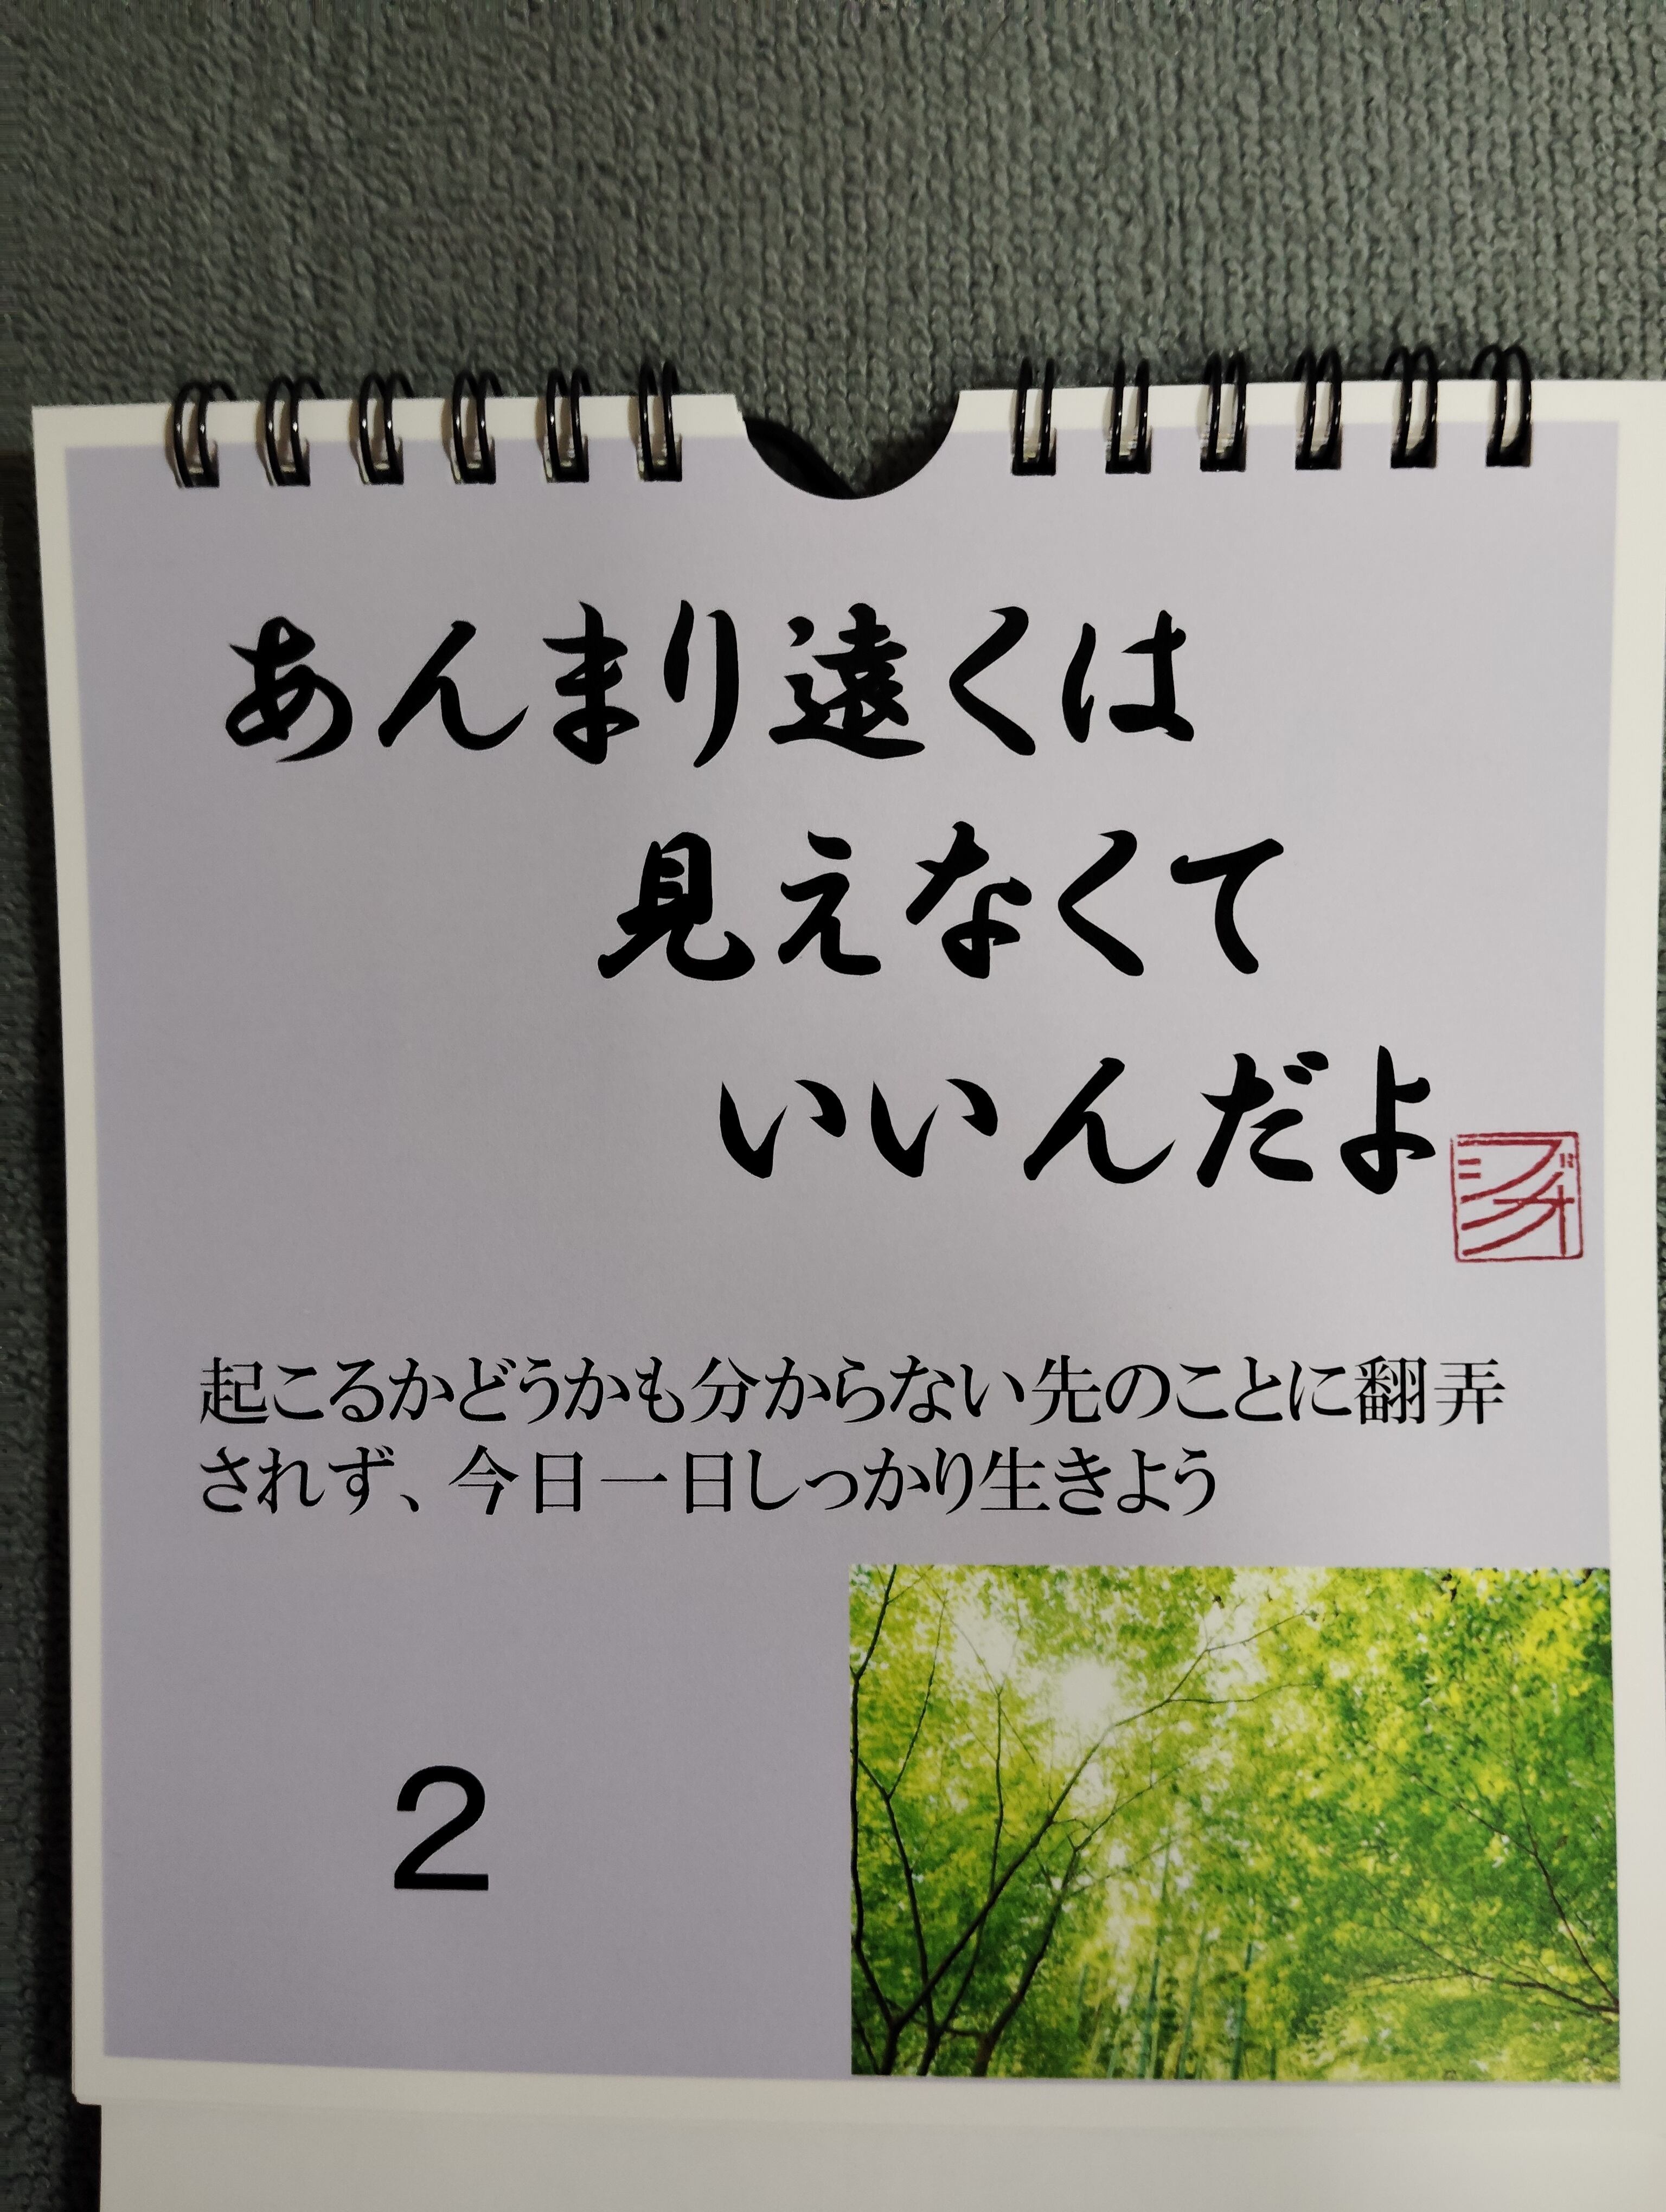 あんまり遠くは
見えなくて
いいんだよ
起こるかどうかも分からない先のことに翻弄
されず、今日一日しっかり生きよう
2